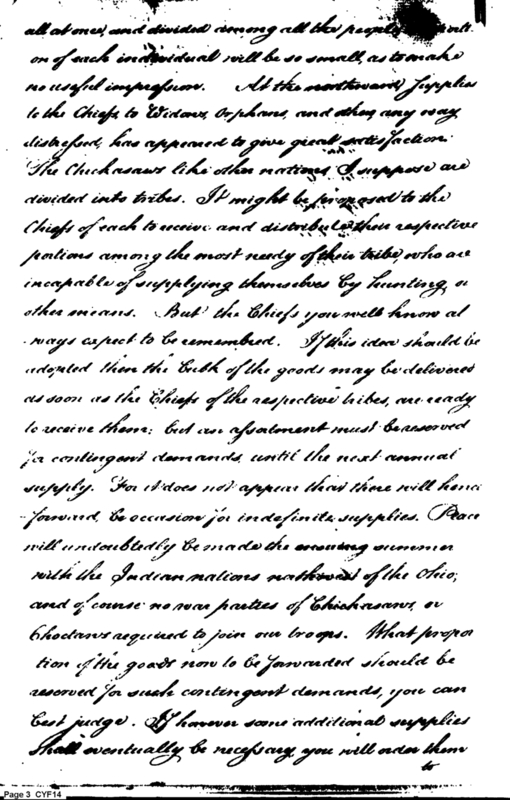 all at once, and divided among all the people
on of each individual will be so small, as to make
no useful impression. At the northward supplies
to the Chiefs, to Widows, Orphans, and others any way
distressed, has appeared to give great satisfaction.
The Chickasaws like other nations, I suppose are
divided into tribes. It might be proposed to the
Chiefs of each to receive and distribute their respective
portions among the most needy of their tribe, who are
incapable of supplying themselves by hunting, or
other means. But the Chiefs you well know al
ways expect to be remembered. If this idea should be
adopted then the bulk of the goods may be delivered
as soon as the Chiefs of the respective tribes, are ready
to receive them; but an assortment must be reserved
for contingent demands, until the next annual
supply. For it does not appear that there will hence
forward, be occasion for indefinite supplies. Peace
will undoubtedly be made the ensuing summer
with the Indian nations northward of the Ohio;
and of course no war parties of Chickasaws, or
Choctaws required to join our troops. What propor
tion of the goods now to be forwarded should be
reserved for such contingent demands, you can
best judge. If however some additional supplies
shall eventually be necessary you will order them
to
Page 3 CYF14